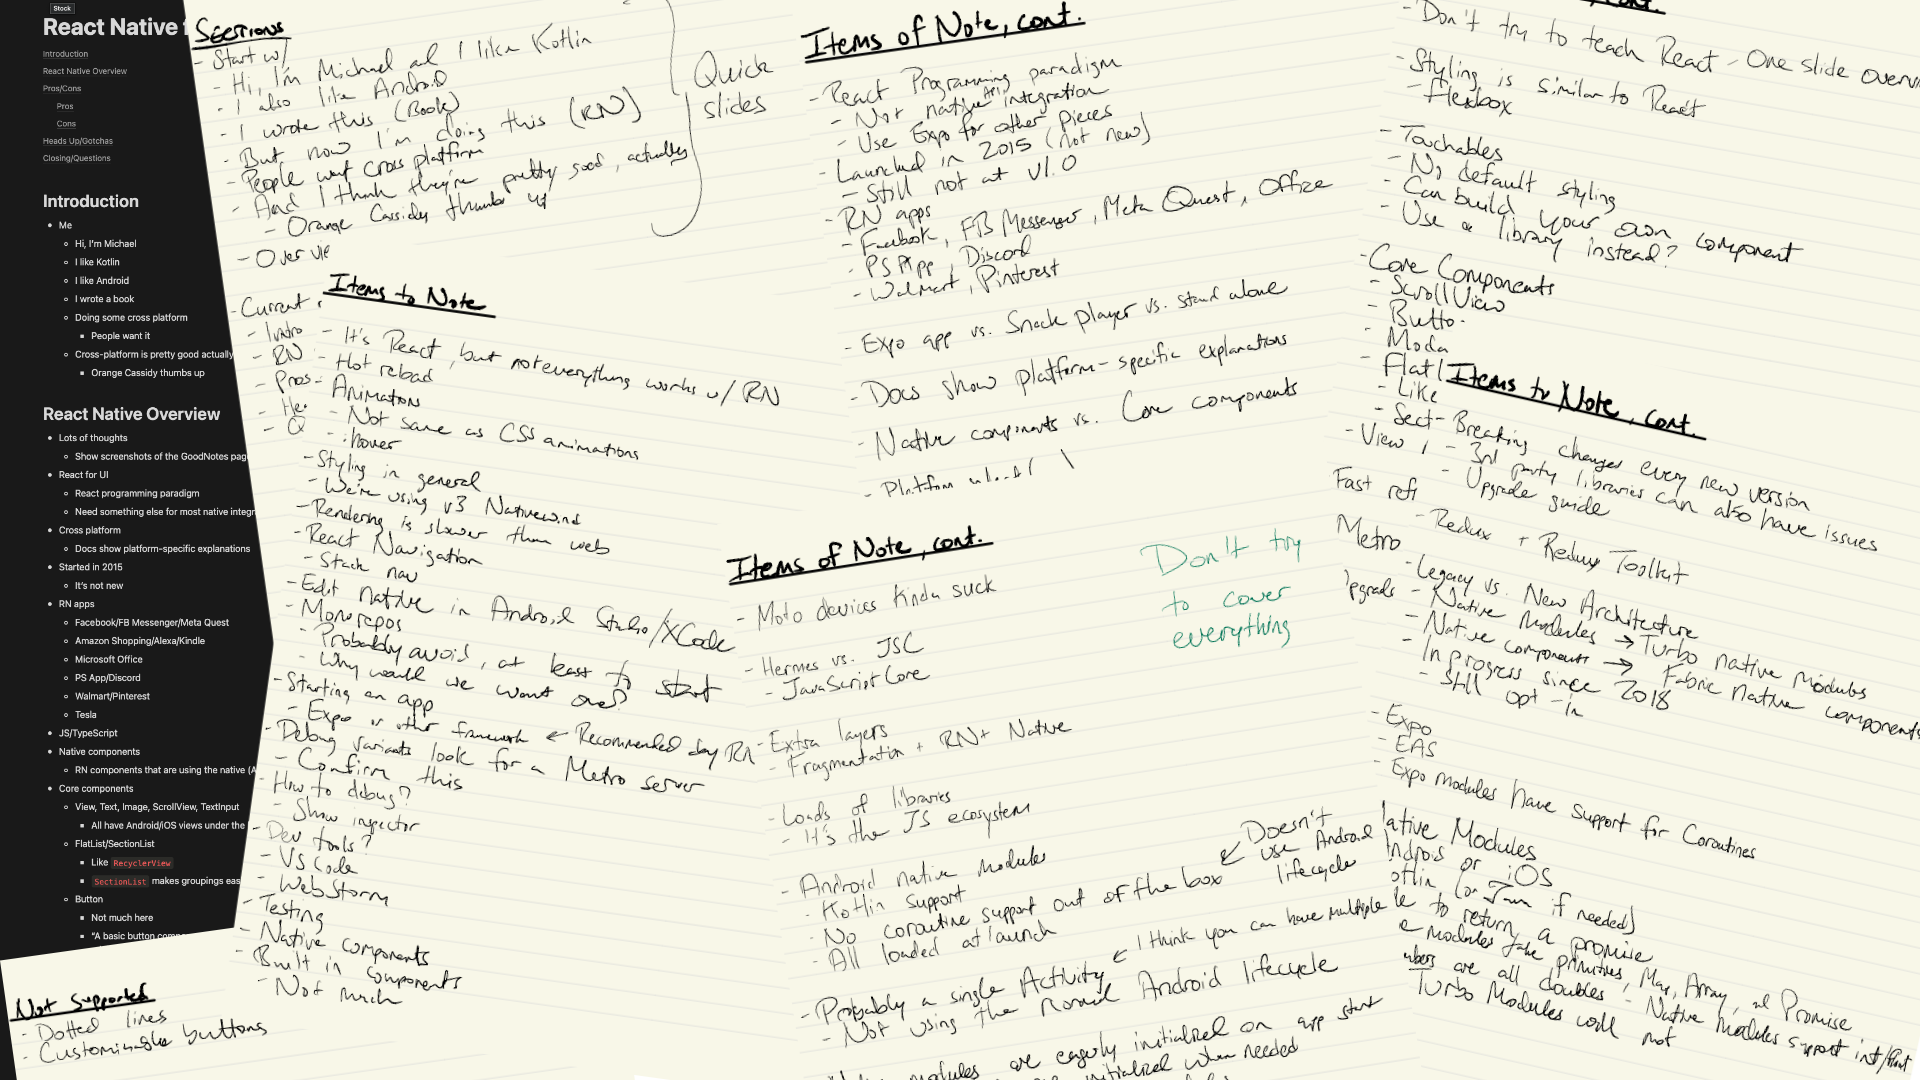 Stock
React Native f
Introduction
React Native Overview
Pros/Cons
Pros
Cons
Heads Up/Gotchas
Closing/Questions
Introduction
• Me
◦ Hi, I'm Michael
◦ I like Kotlin
◦ I like Android
◦ I wrote a book
◦ Doing some cross platform
▪ People want it
◦ Cross-platform is pretty good actually
▪ Orange Cassidy thumbs up
React Native Overview
• Lots of thoughts
◦ Show screenshots of the GoodNotes pag
• React for UI
◦ React programming paradigm
◦ Need something else for most native integr
• Cross platform
◦ Docs show platform-specific explanations
• Started in 2015
◦ It's not new
• RN apps
◦ Facebook/FB Messenger/Meta Quest
◦ Amazon Shopping/Alexa/Kindle
◦ Microsoft Office
◦ PS App/Discord
◦ Walmart/Pinterest
◦ Tesla
• JS/TypeScript
• Native components
◦ RN components that are using the native (A
• Core components
◦ View, Text, Image, ScrollView, TextInput
▪ All have Android/iOS views under the
◦ FlatList/SectionList
▪ Like RecyclerView
▪ SectionList makes groupings eas
◦ Button
▪ Not much here
▪ "A basic button comp
Sections
- Start w/
- Hi, I'm Michael and I like Kotlin
- I also like Android
- I wrote this (Book)
- But now I'm doing this (RN)
- People want cross platform
- And I think they're pretty good, actually
- Orange Cassidy thumbs up
- Over vie
Quick
slides
- Current
- Intro
- RN
- Pros
- He
- Q
Items to Note
- It's React, but not everything works w/ RN
- Hot reload
- Animations
- Not same as CSS animations
- :hover
- Styling in general
- We're using v3 Nativewind
- Rendering is slower than web
- React Navigation
- Stack nav
- Edit native in Android Studio/XCode
- Monorepos
- Probably avoid, at least to start
- Why would we want one?
- Starting an app
- Expo vs other framework ← Recommended by RN
- Debug variants look for a Metro server
- Confirm this
- How to debug?
- Show inspector
- Dev tools?
- VS Code
- WebStorm
- Testing
- Native components
- Built in components
- Not much
Not Supported
- Dotted lines
- Customizable buttons
Items of Note, cont.
- React Programming paradigm
- Not native API integration
- Use Expo for other pieces
- Launched in 2015 (not new)
- Still not at v1.0
- RN apps
- Facebook, FB Messenger, Meta Quest, Office
- PS App, Discord
- Walmart, Pinterest
- Expo app vs. Snack player vs. stand alone
- Docs show platform-specific explanations
- Native components vs. Core components
- Platform
Items of Note, cont.
- Moto devices kinda suck
- Hermes vs. JSC
- JavaScriptCore
- Extra layers
- Fragmentation + RN + Native
- Loads of libraries
- It's the JS ecosystem
- Android native modules
- Kotlin support
- No coroutine support out of the box ← Doesn't use Android lifecycle
- All loaded at launch
- Probably a single Activity ← I think you can have multiple
- Not using the normal Android lifecycle
modules are eagerly initialized on app start
initialized when needed
Don't try
to cover
everything
cont.
- Don't try to teach React - One slide overvi
- Styling is similar to React
- flexbox
- Touchables
- No default styling
- Can build your own component
- Use a library instead?
- Core Components
- ScrollView
- Butto
- Moda
- Flatl
- Like
- Sect
- View,
Fast refr
Metro
Upgrade
Items to Note, cont.
- Breaking changes every new version
- 3rd party libraries can also have issues
- Upgrade guide
- Redux + Redux Toolkit
- Legacy vs. New Architecture
- Native Modules → Turbo native modules
- Native components → Fabric native components
- In progress since 2018
- Still opt-in
- Expo
- EAS
- Expo modules have support for Coroutines
ative Modules
ndroid or iOS
otlin (or Java if needed)
le to return a promise
e modules take primitives, Map, Array, and Promise
umbers are all doubles - Native Modules support int/float
Turbo Modules will not